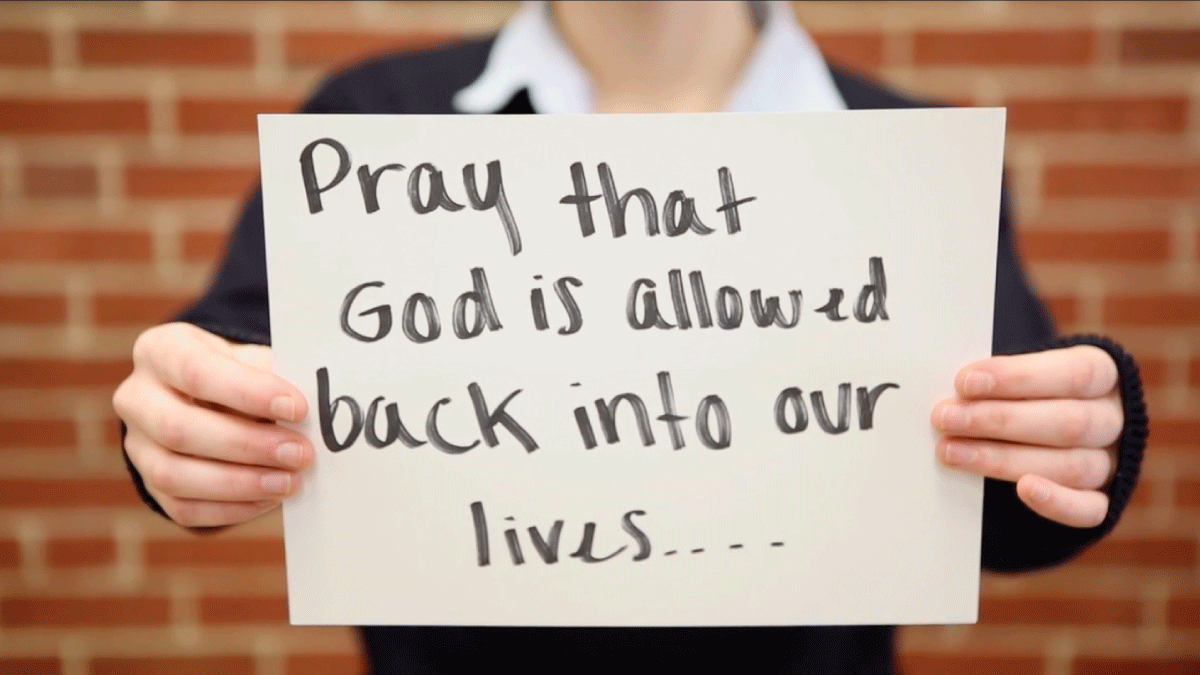 Pray that
God is allowed
back into our
lives....